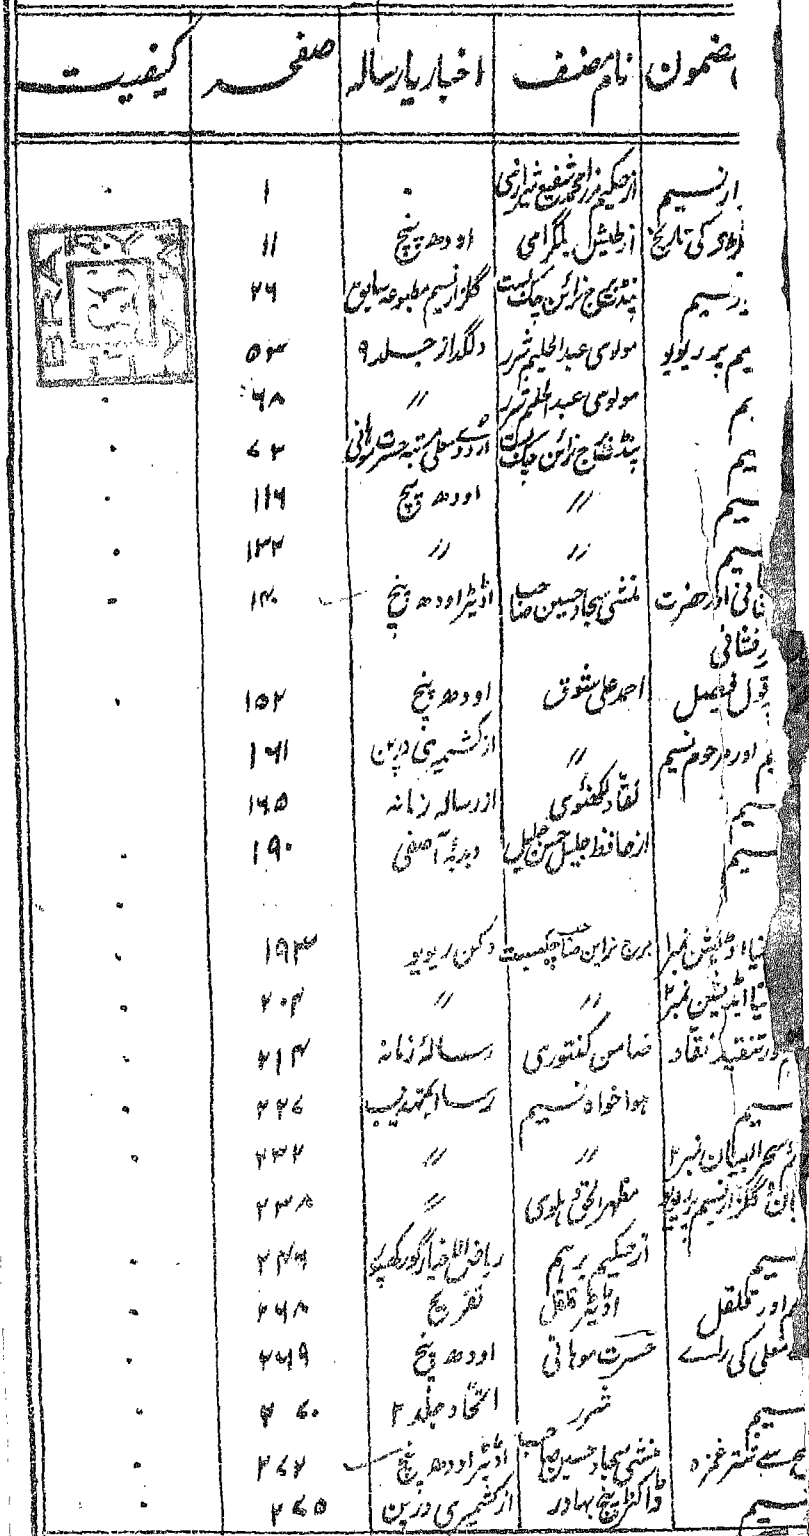 مضمون نام مصنف اخبار یا رسالہ صفحہ کیفیت
ار نسیم از حکیم مرزا محمد شفیع شیرازی ۱
کی تاریخ از طیش بلگرامی اودھ پنچ ۱۱
نسیم پنڈت برج نرائن چکبست گلزار نسیم مطبوعہ سابق ۲۶
یم پر ریویو مولوی عبدالحلیم شرر دلگداز جلد ۹ ۵۳
یم مولوی عبدالحلیم شرر 〃 ۶۸
یم پنڈت برج نرائن چکبست اردوے معلی مرتبہ حسرت موہانی ۷۲
سیم 〃 اودھ پنچ ۱۱۶
سیم 〃 〃 ۱۳۲
فانی اور حضرت منشی سجاد حسین صاحب اڈیٹر اودھ پنچ ۱۴۰
رفشانی
قول فیصل احمد علی شوق اودھ پنچ ۱۵۲
یم اور مرحوم نسیم 〃 از کشمیری درپن ۱۶۱
سیم نقاد لکھنوی از رسالہ زمانہ ۱۶۵
سیم از حافظ جلیل حسن جلیل دبدبۂ آصفی ۱۹۰
نیا اڈیشن نمبر ۱ برج نراین صاحب چکبست دکن ریویو ۱۹۳
نیا ایڈیشن نمبر ۲ 〃 〃 ۲۰۴
اور تنقید نقاد ضامن کنتوری رسالۂ زمانہ ۲۱۴
سیم ہوا خواہ نسیم رسالہ تہذیب ۲۲۷
سحر البیان نمبر ۲ 〃 〃 ۲۳۲
گلزار نسیم پر ریویو مظہر الحق دہلوی 〃 ۲۳۸
سیم از حکیم برہم ریاض الاخبار گورکھپور ۲۴۶
اور قلقل اڈیٹر قلقل تفریح ۲۶۸
معلی کی راے حسرت موہانی اودھ پنچ ۲۶۹
سیم شرر اتحاد جلد ۲ ۲۷۰
سے شتر غمزہ منشی سجاد حسین صاحب اڈیٹر اودھ پنچ ۲۷۲
نسیم ڈاکٹر تیج بہادر از کشمیری درپن ۲۷۵